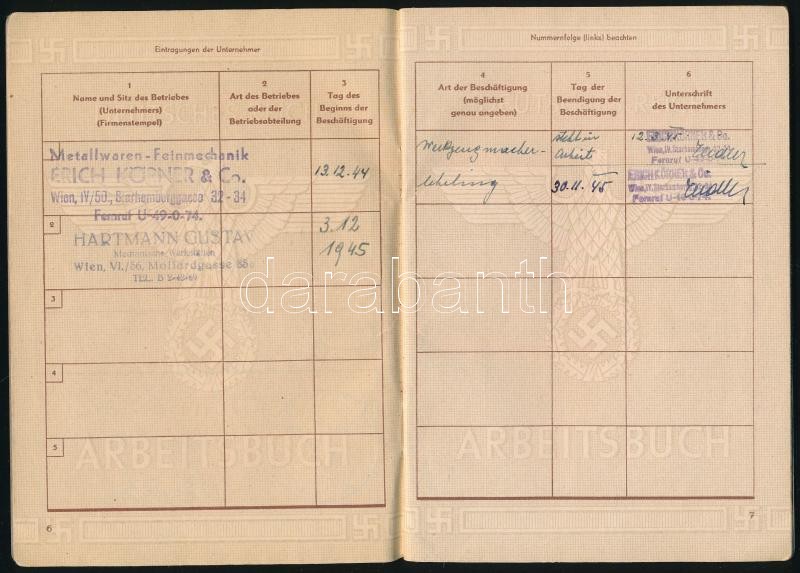 Eintragungen der Unternehmer
1
Name und Sitz des Betriebes
(Unternehmers)
(Firmenstempel)
2
Art des Betriebes
oder der
Betriebsabteilung
3
Tag des
Beginns der
Beschäftigung
Metallwaren-Feinmechanik
ERICH KÖRNER & Co.
Wien, IV/50., Starhemberggasse 32-34
Fernruf U-49-0-74.
13.12.44
2
HARTMANN GUSTAV
Mechanische Werkstätten
Wien, VI./56, Mollardgasse 85a
TEL. B 2-42-69
3.12
1945
3
4
5
ARBEITSBUCH
6
Nummernfolge (links) beachten
4
Art der Beschäftigung
(möglichst
genau angeben)
5
Tag der
Beendigung der
Beschäftigung
6
Unterschrift
des Unternehmers
Werkzeugmacher-
lehrling
Arbeit
30.11.45
ERICH KÖRNER & Co.
Fernruf U-49-0-74.
ERICH KÖRNER & Co.
Fernruf U-49-0-74.
ARBEITSBUCH
7
darabanth